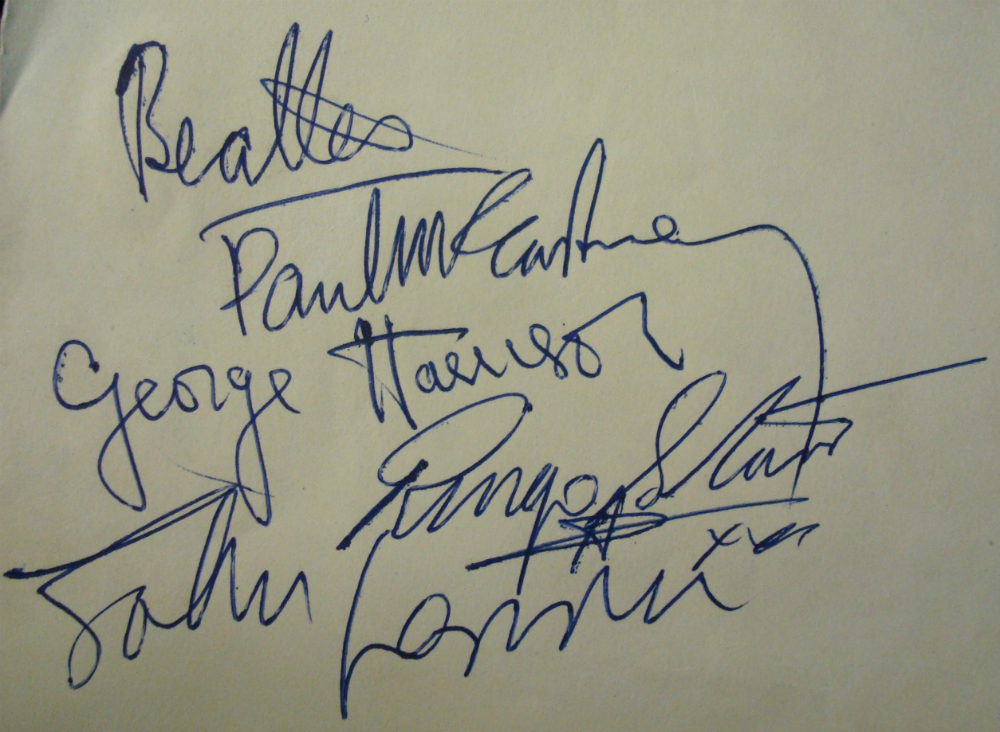 Beatles
Paul McCartney
George Harrison
Ringo Starr
John Lennon xxx